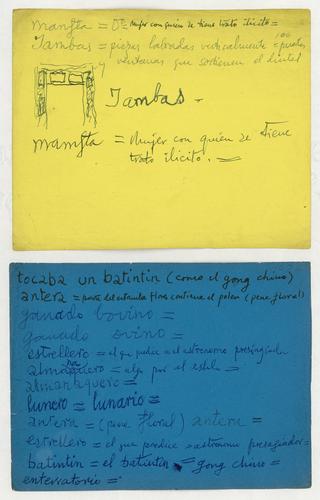 mansfla = Dº Mujer con quien se tiene trato ilicito =
Jambas = piezas labradas verticalmente = puertas
y ventanas que sostienen el dintel
Jambas.
mansfla = Mujer con quien se tiene
trato ilicito. =
tocaba un batintin (como el gong chino)
antera = parte del estambre flores contiene el polen (pene floral)
ganado bovino =
ganado ovino =
estrellero = el que predice = el astronomo presagiador
almanaquero = algo por el estilo =
almanaquero =
lunero = lunario =
antera = (pene floral) antera =
estrellero = el que predice = astronomo presagiador =
batintin = el batintin = gong chino =
entervatorio =